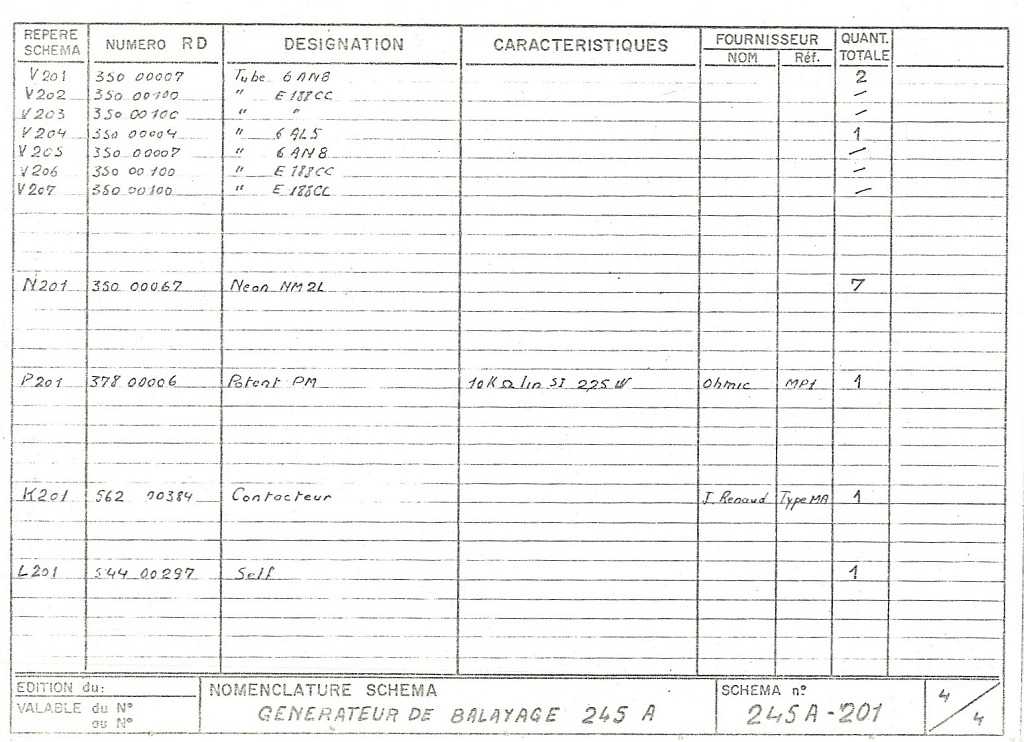 REPERE SCHEMA NUMERO RD DESIGNATION CARACTERISTIQUES FOURNISSEUR NOM Réf. QUANT. TOTALE
V201 350 00007 Tube 6AN8 2
V202 350 00100 " E188CC /
V203 350 00100 " " /
V204 350 00004 " 6AL5 1
V205 350 00007 " 6AN8 /
V206 350 00100 " E188CC /
V207 350 00100 " E188CC /
N201 350 00067 Neon NM2L 7
P201 378 00006 Potent PM 10KΩ lin SI 2,25 W Ohmic MP1 1
K201 562 00384 Contacteur J. Renaud Type MA 1
L201 544 00297 Self 1
EDITION du:
VALABLE du N°
au N°
NOMENCLATURE SCHEMA
GENERATEUR DE BALAYAGE 245 A
SCHEMA n°
245A-201
4/4